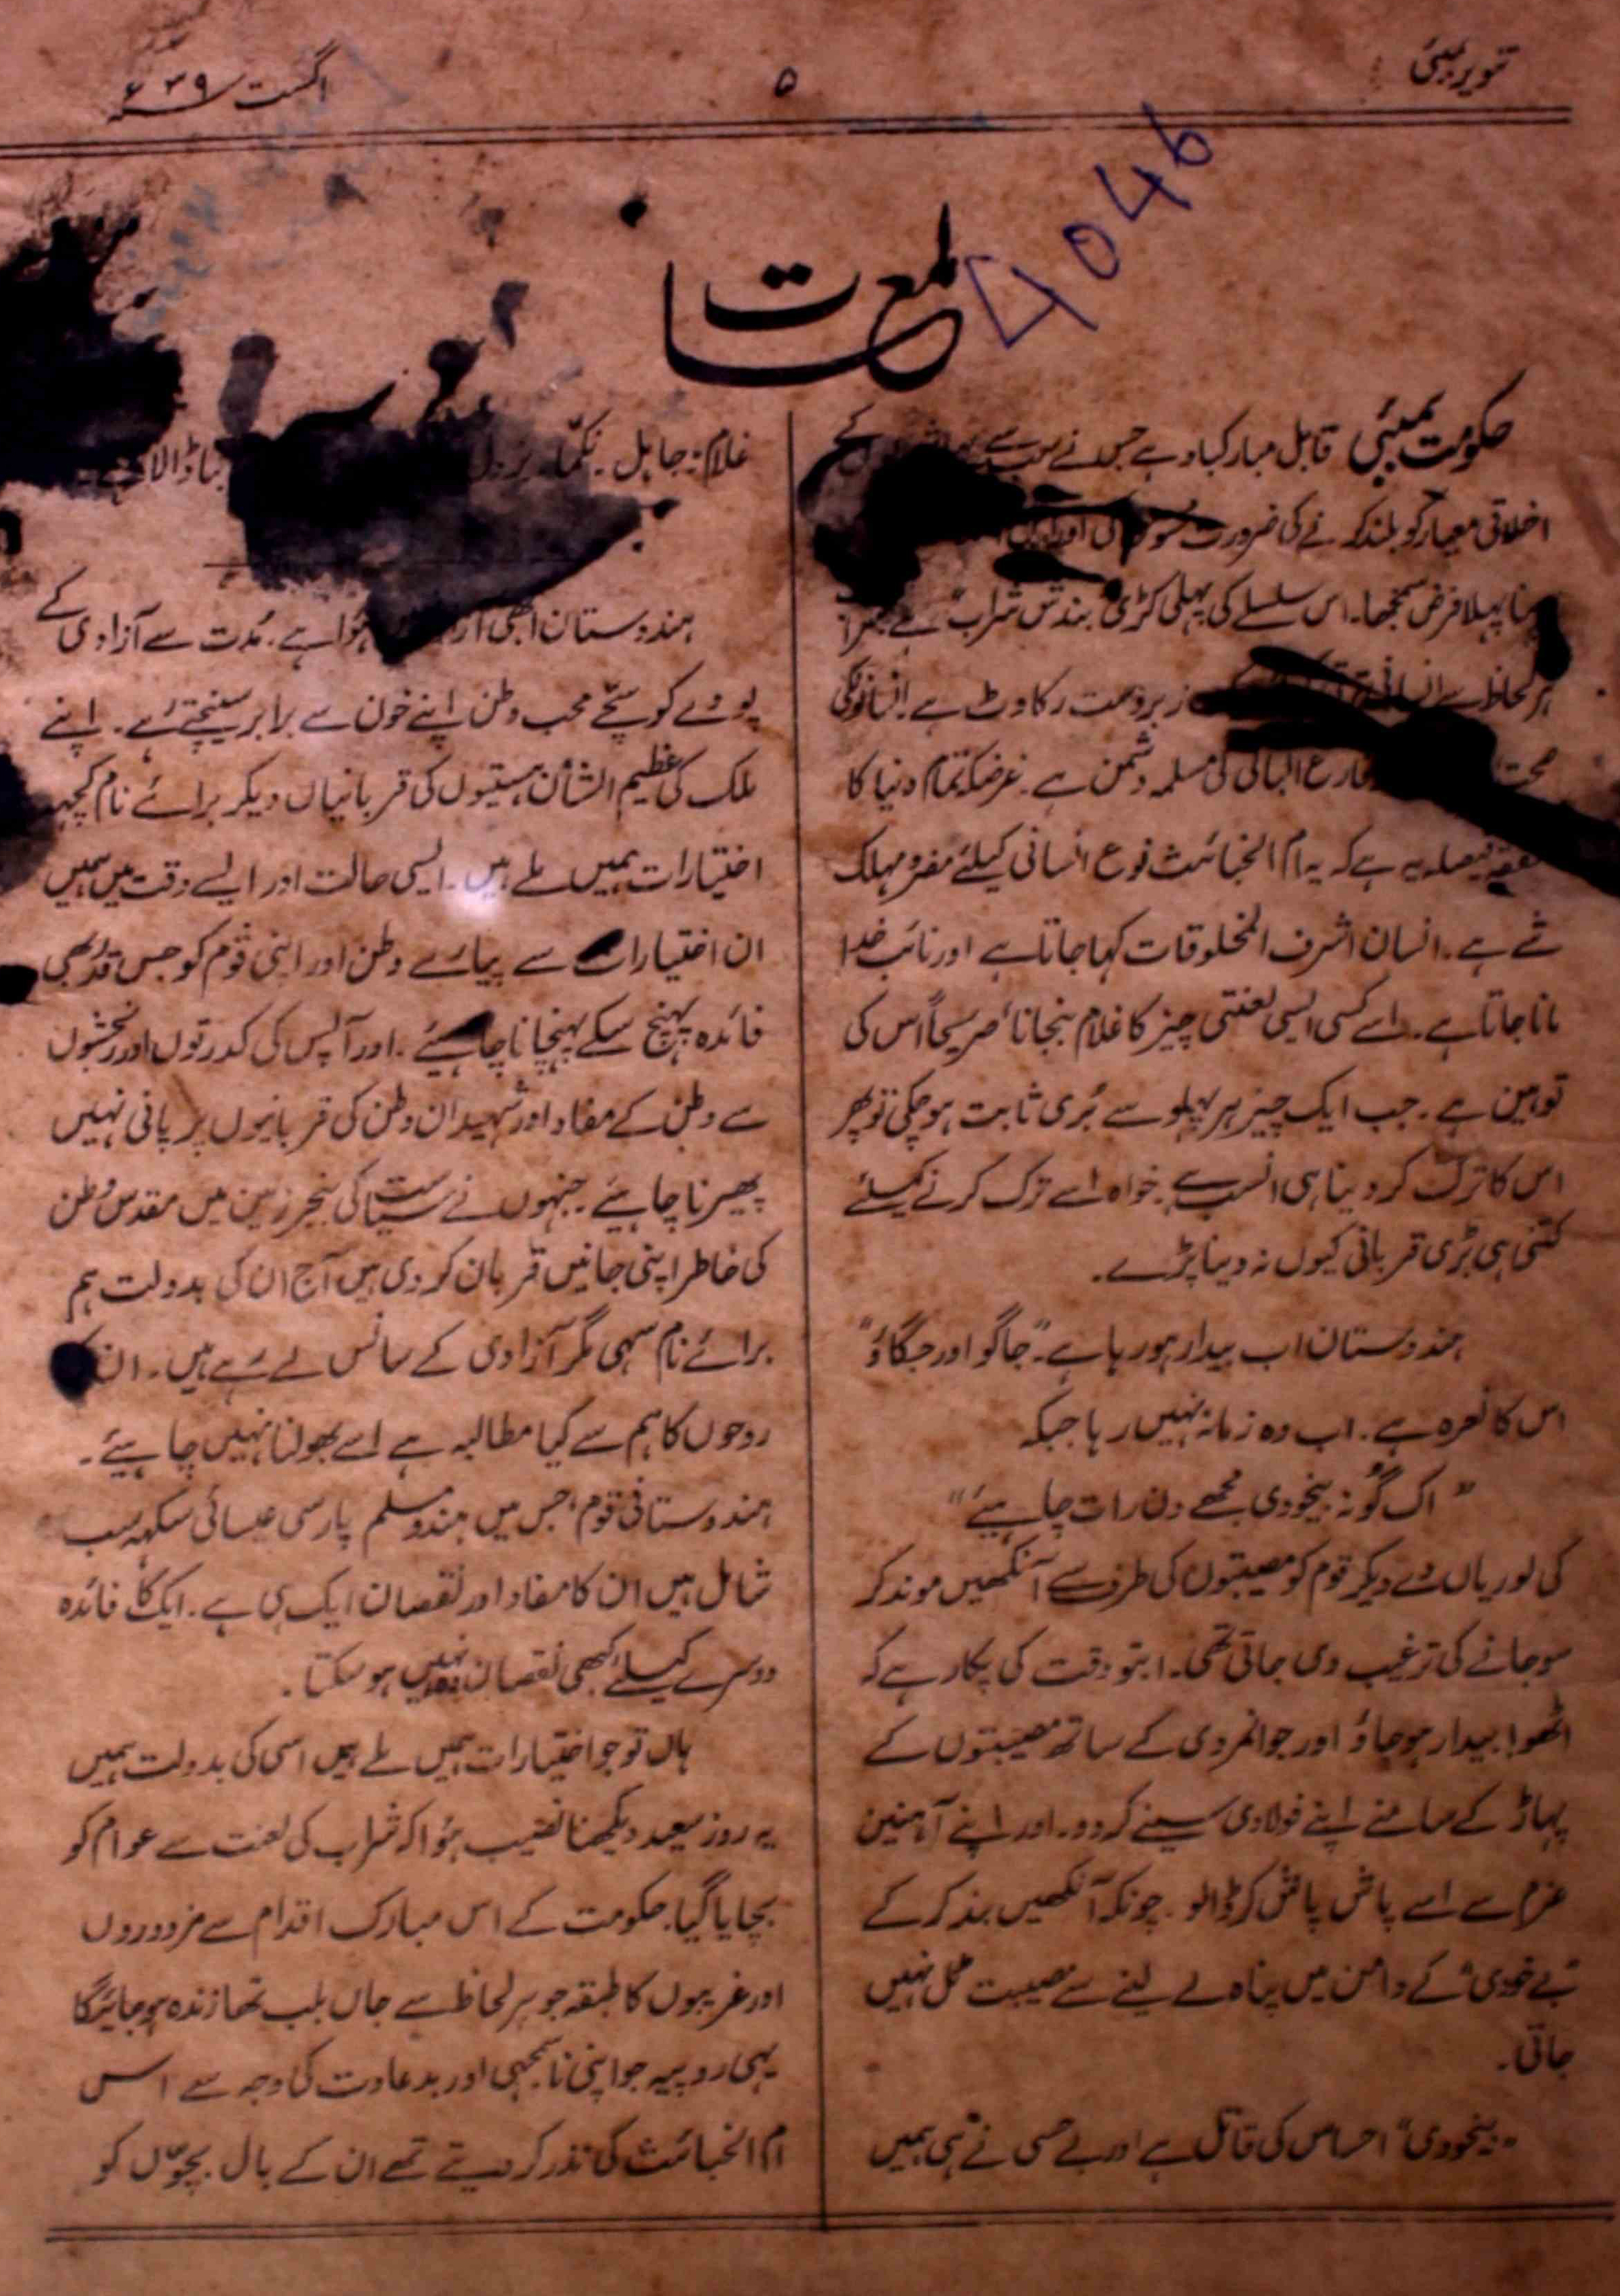 تنویر بمبئی
۵
اگست ۳۹ء
4046
لمعات
حکومت بمبئی قابل مبارکباد ہے جس نے سب سے کے
اخلاقی معیار کو بلند کرنے کی ضرورت محسوس کی اور
اپنا پہلا فرض سمجھا۔ اس سلسلے کی پہلی کڑی بندش شراب ہے
ہر لحاظ سے زبردست رکاوٹ ہے۔ انسانونکی
صحت فارغ البالی کی مسلمہ دشمن ہے۔ غرضکہ تمام دنیا کا
متفقہ فیصلہ یہ ہے کہ یہ ام الخبائث نوع انسانی کیلئے مضر و مہلک
شے ہے۔ انسان اشرف المخلوقات کہا جاتا ہے اور نائب خدا
مانا جاتا ہے۔ اسے کسی ایسی لعنتی چیز کا غلام بنجانا صریحاً اس کی
توہین ہے۔ جب ایک چیز ہر پہلو سے بُری ثابت ہو چکی تو پھر
اس کا ترک کر دینا ہی انسب ہے۔ خواہ اسے ترک کرنے کیلئے
کتنی ہی بڑی قربانی کیوں نہ دینا پڑے۔
ہندوستان اب بیدار ہو رہا ہے۔ "جاگو اور جگاؤ"
اس کا نعرہ ہے۔ اب وہ زمانہ نہیں رہا جبکہ
"اک گُونہ بیخودی مجھے دن رات چاہیئے"
کی لوریاں دے دیکر قوم کو مصیبتوں کی طرف سے آنکھیں موند کر
سوجانے کی ترغیب دی جاتی تھی۔ ابتو وقت کی پکار ہے کہ
اٹھو! بیدار ہو جاؤ اور جوانمردی کے ساتھ مصیبتوں کے
پہاڑ کے سامنے اپنے فولادی سینے کر دو۔ اور اپنے آہنین
عزم سے اسے پاش پاش کر ڈالو۔ چونکہ آنکھیں بند کر کے
"بے خودی" کے دامن میں پناہ لے لینے سے مصیبت ٹل نہیں
جاتی۔
"بیخودی" احساس کی قاتل ہے اور بے حسی نے ہی ہمیں
غلام۔ جاہل۔ نکمّا۔ بزدل بنا ڈالا ہے۔
ہندوستان ابھی ہُوا ہے۔ مُدت سے آزادی کے
پودے کو سچّے محب وطن اپنے خون سے برابر سینچتے رہے۔ اپنے
ملک کی عظیم الشان ہستیوں کی قربانیاں دیکر برائے نام کچھ
اختیارات ہمیں ملے ہیں۔ ایسی حالت اور ایسے وقت میں ہمیں
ان اختیارات سے پیارے وطن اور اپنی قوم کو جس قدر بھی
فائدہ پہنچ سکے پہنچانا چاہیئے۔ اور آپس کی کدورتوں اور رنجشوں
سے وطن کے مفاد اور شہیدان وطن کی قربانیوں پر پانی نہیں
پھیرنا چاہیئے۔ جنہوں نے سیاست کی بنجر زمین میں مقدس وطن
کی خاطر اپنی جانیں قربان کر دی ہیں آج ان کی بدولت ہم
برائے نام سہی مگر آزادی کے سانس لے رہے ہیں۔ ان کی
روحوں کا ہم سے کیا مطالبہ ہے اسے بھولنا نہیں چاہیئے۔
ہندوستانی قوم، جس میں ہندو مسلم پارسی عیسائی سکھ سب
شامل ہیں ان کا مفاد اور نقصان ایک ہی ہے۔ ایک کا فائدہ
دوسرے کیلئے کبھی نقصان نہیں ہو سکتا۔
ہاں تو جو اختیارات ہمیں ملے ہیں اسی کی بدولت ہمیں
یہ روز سعید دیکھنا نصیب ہُوا کہ شراب کی لعنت سے عوام کو
بچایا گیا۔ حکومت کے اس مبارک اقدام سے مزدوروں
اور غریبوں کا طبقہ جو ہر لحاظ سے جاں بلب تھا زندہ ہو جائیگا
یہی روپیہ جو اپنی ناسمجھی اور بدعادت کی وجہ سے اس
ام الخبائث کی نذر کر دیتے تھے ان کے بال بچّوں کو